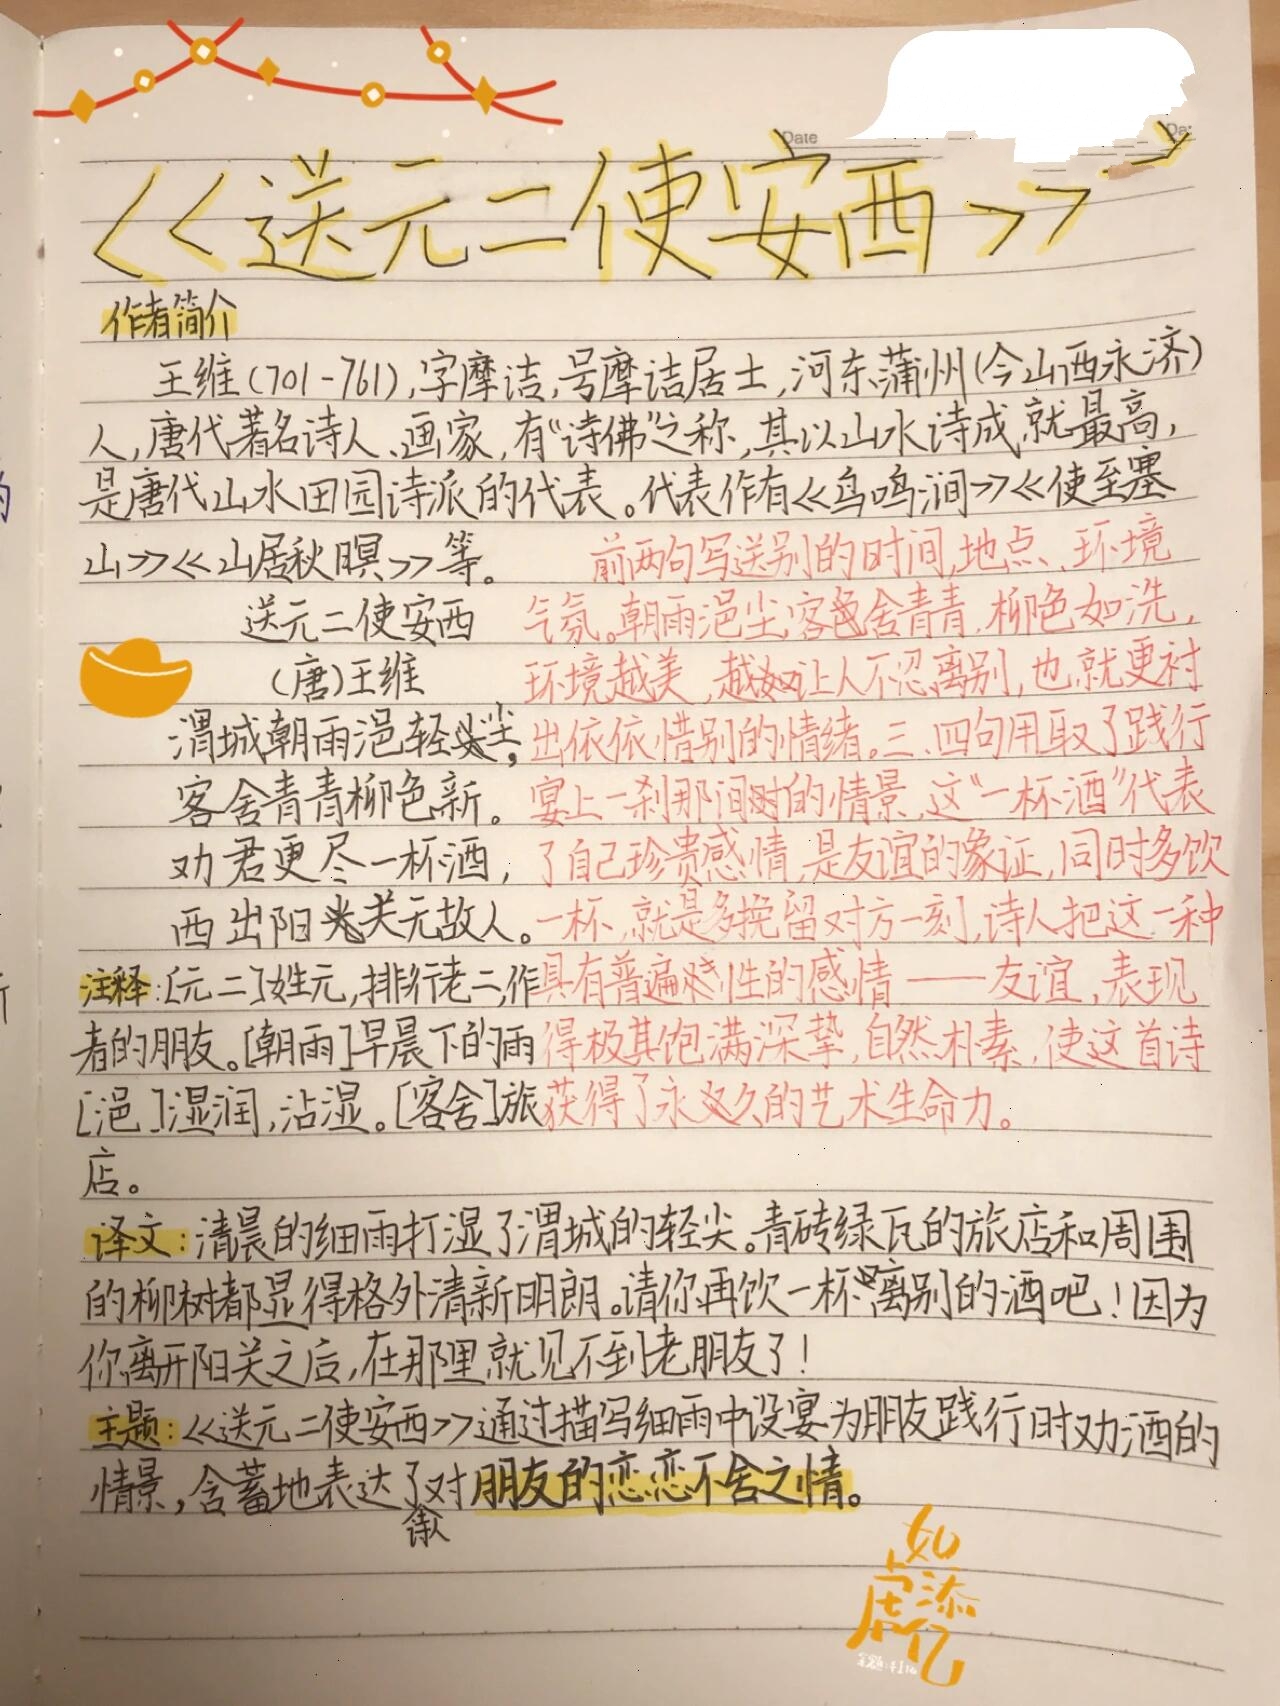 Date
<<送元二使安西>>
作者简介
王维(701-761),字摩诘,号摩诘居士,河东蒲州(今山西永济)
人,唐代著名诗人、画家,有“诗佛”之称,其以山水诗成就最高,
是唐代山水田园诗派的代表。代表作有<<鸟鸣涧>><<使至塞
山>><<山居秋暝>>等。
送元二使安西
(唐)王维
渭城朝雨浥轻尘,
客舍青青柳色新。
劝君更尽一杯酒,
西出阳关无故人。
注释:[元二]姓元,排行老二,作
者的朋友。[朝雨]早晨下的雨
[浥]湿润,沾湿。[客舍]旅
店。
前两句写送别的时间,地点、环境
气氛。朝雨浥尘,客舍青青,柳色如洗,
环境越美,越让人不忍离别,也就更衬
出依依惜别的情绪。三、四句用取了践行
宴上一刹那间的情景,这“一杯酒”代表
了自己珍贵感情,是友谊的象证,同时多饮
一杯,就是多挽留对方一刻,诗人把这一种
具有普遍性的感情——友谊,表现
得极其饱满深挚,自然朴素,使这首诗
获得了永久的艺术生命力。
译文:清晨的细雨打湿了渭城的轻尖。青砖绿瓦的旅店和周围
的柳树都显得格外清新明朗。请你再饮一杯离别的酒吧!因为
你离开阳关之后,在那里就见不到老朋友了!
主题:<<送元二使安西>>通过描写细雨中设宴为朋友践行时劝酒的
情景,含蓄地表达了对朋友的恋恋不舍之情。
如
虎添
亿